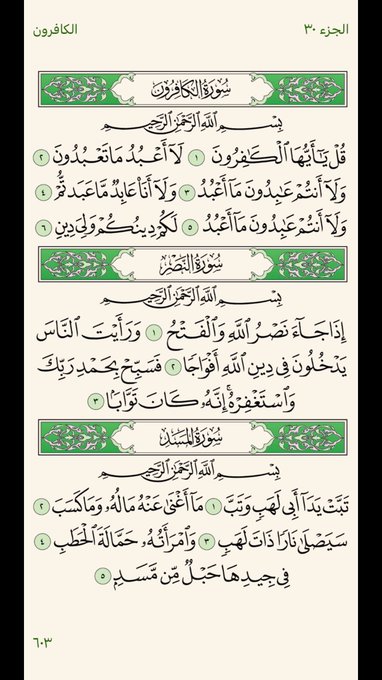 الجزء ٣٠
الكافرون
سُورَةُ الكَافِرُونَ
بِسْمِ اللَّهِ الرَّحْمَٰنِ الرَّحِيمِ
قُلْ يَٰٓأَيُّهَا ٱلْكَٰفِرُونَ ١ لَآ أَعْبُدُ مَا تَعْبُدُونَ ٢
وَلَآ أَنتُمْ عَٰبِدُونَ مَآ أَعْبُدُ ٣ وَلَآ أَنَا۠ عَابِدٌ مَّا عَبَدتُّمْ ٤
وَلَآ أَنتُمْ عَٰبِدُونَ مَآ أَعْبُدُ ٥ لَكُمْ دِينُكُمْ وَلِىَ دِينِ ٦
سُورَةُ النَّصْرِ
بِسْمِ اللَّهِ الرَّحْمَٰنِ الرَّحِيمِ
إِذَا جَآءَ نَصْرُ ٱللَّهِ وَٱلْفَتْحُ ١ وَرَأَيْتَ ٱلنَّاسَ
يَدْخُلُونَ فِى دِينِ ٱللَّهِ أَفْوَاجًا ٢ فَسَبِّحْ بِحَمْدِ رَبِّكَ
وَٱسْتَغْفِرْهُ ۚ إِنَّهُۥ كَانَ تَوَّابًۢا ٣
سُورَةُ المَسَدِ
بِسْمِ اللَّهِ الرَّحْمَٰنِ الرَّحِيمِ
تَبَّتْ يَدَآ أَبِى لَهَبٍ وَتَبَّ ١ مَآ أَغْنَىٰ عَنْهُ مَالُهُۥ وَمَا كَسَبَ ٢
سَيَصْلَىٰ نَارًا ذَاتَ لَهَبٍ ٣ وَٱمْرَأَتُهُۥ حَمَّالَةَ ٱلْحَطَبِ ٤
فِى جِيدِهَا حَبْلٌ مِّن مَّسَدٍۭ ٥
٦٠٣